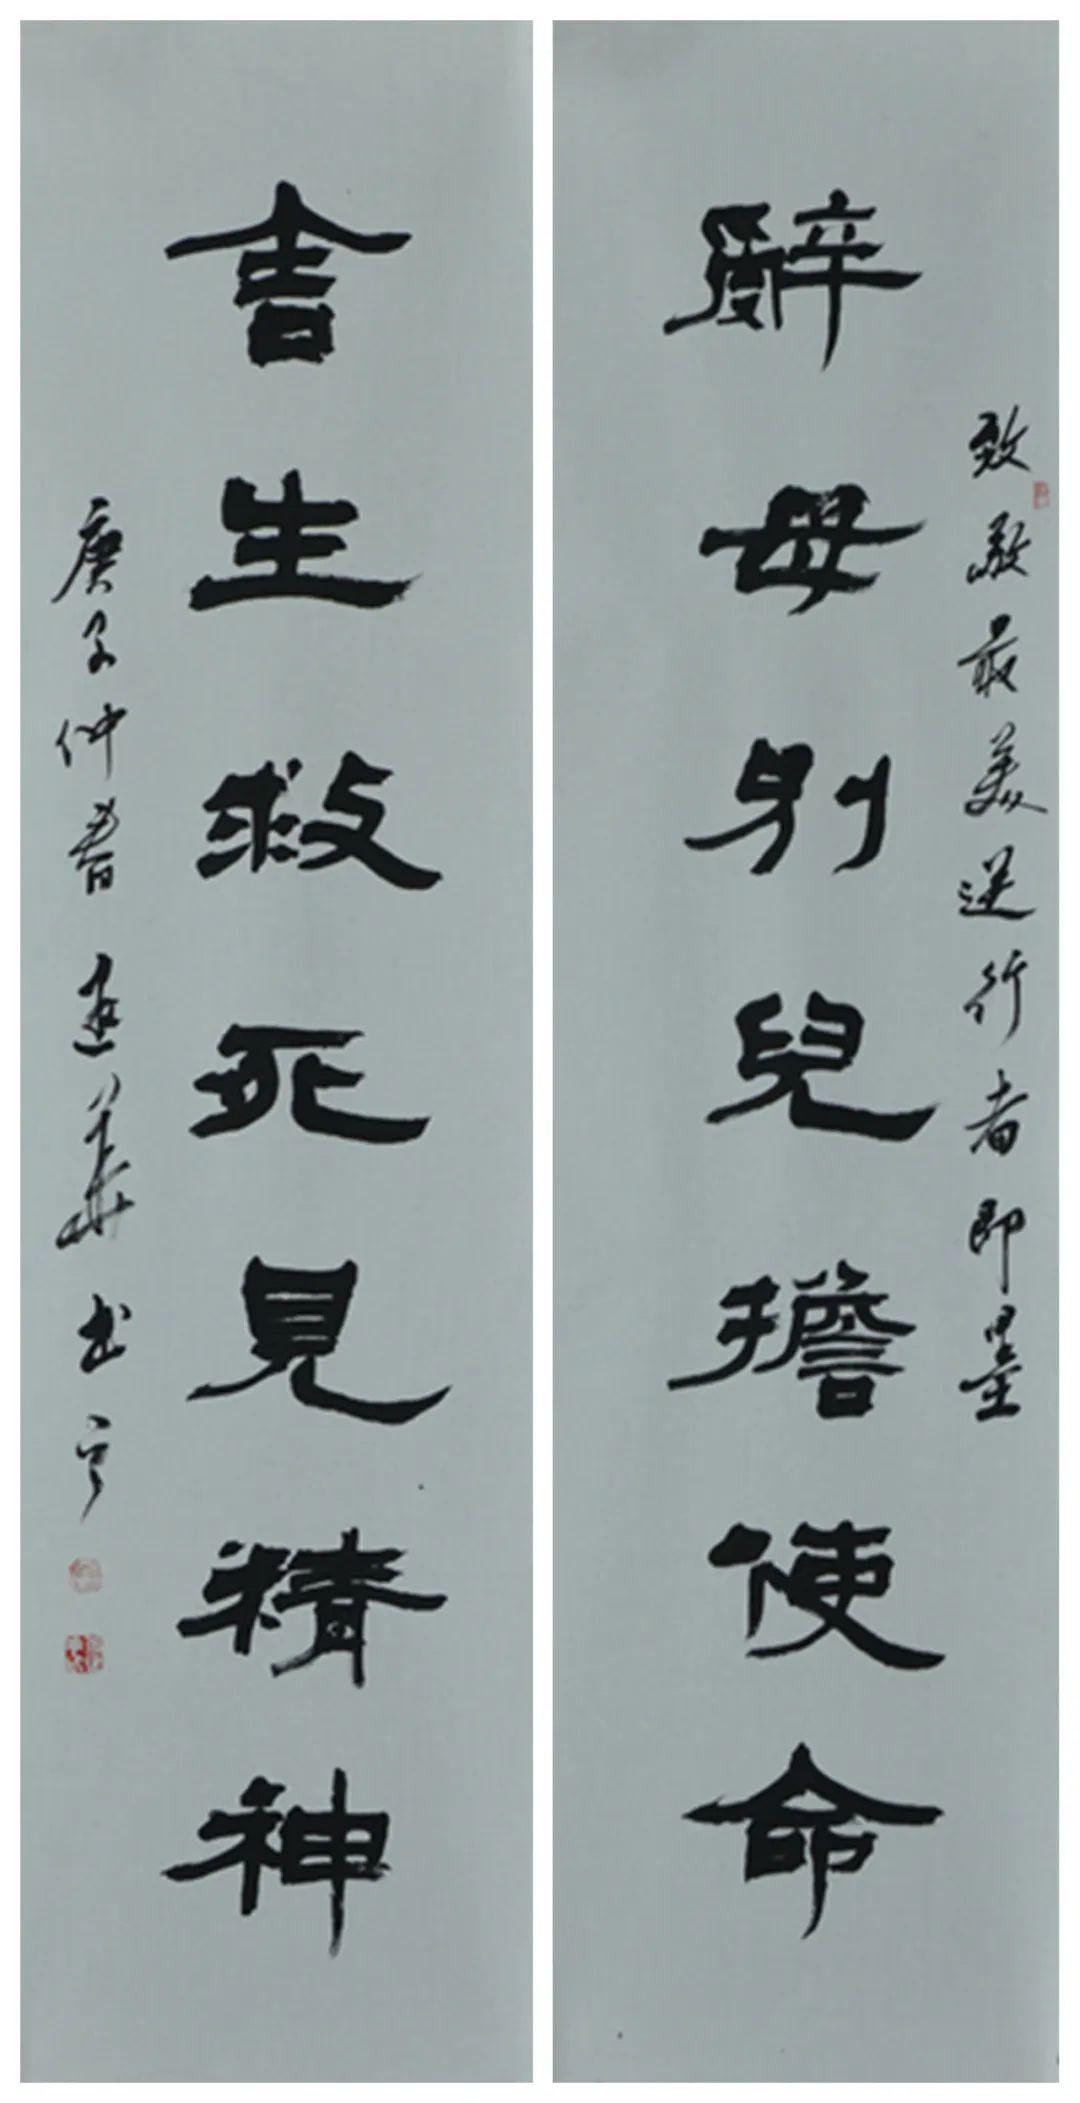 致敬最美逆行者即墨
辭母別兒擔使命
舍生救死見精神
庚子仲春進華书